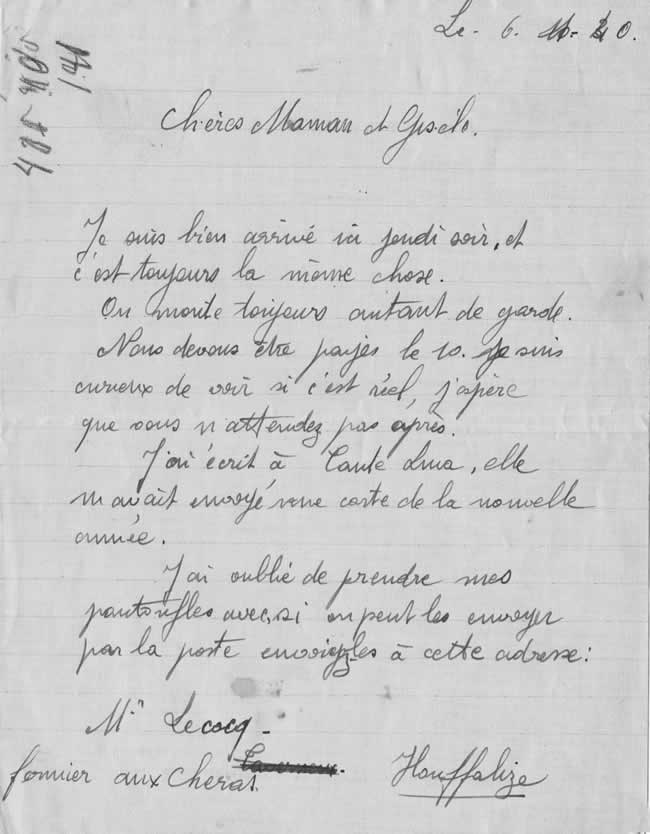 Le - 6. 40.
Chères Maman et Gisèle.
Je suis bien arrivé ici jeudi soir, et
c'est toujours la même chose.
On monte toujours autant de garde.
Nous devons être payés le 10. Je suis
curieux de voir si c'est réel, j'espère
que vous n'attendez pas après.
J'ai écrit à Tante Lina, elle
m'avait envoyé une carte de la nouvelle
année.
J'ai oublié de prendre mes
pantoufles avec, si on peut les envoyer
par la poste envoiez les à cette adresse:
Mr Lecocq -
fermier aux Cheras. Houffalize